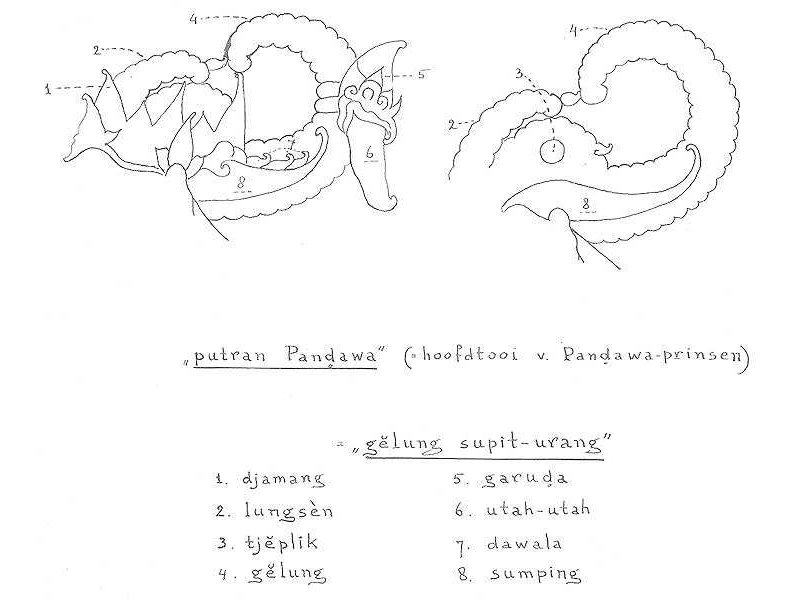 4
2
1
5
6
7
8
4
3
2
8
„putran Panḍawa" (= hoofdtooi v. Panḍawa-prinsen)
= „gĕlung supit-urang"
1. djamang
2. lungsèn
3. tjĕplik
4. gĕlung
5. garuḍa
6. utah-utah
7. dawala
8. sumping